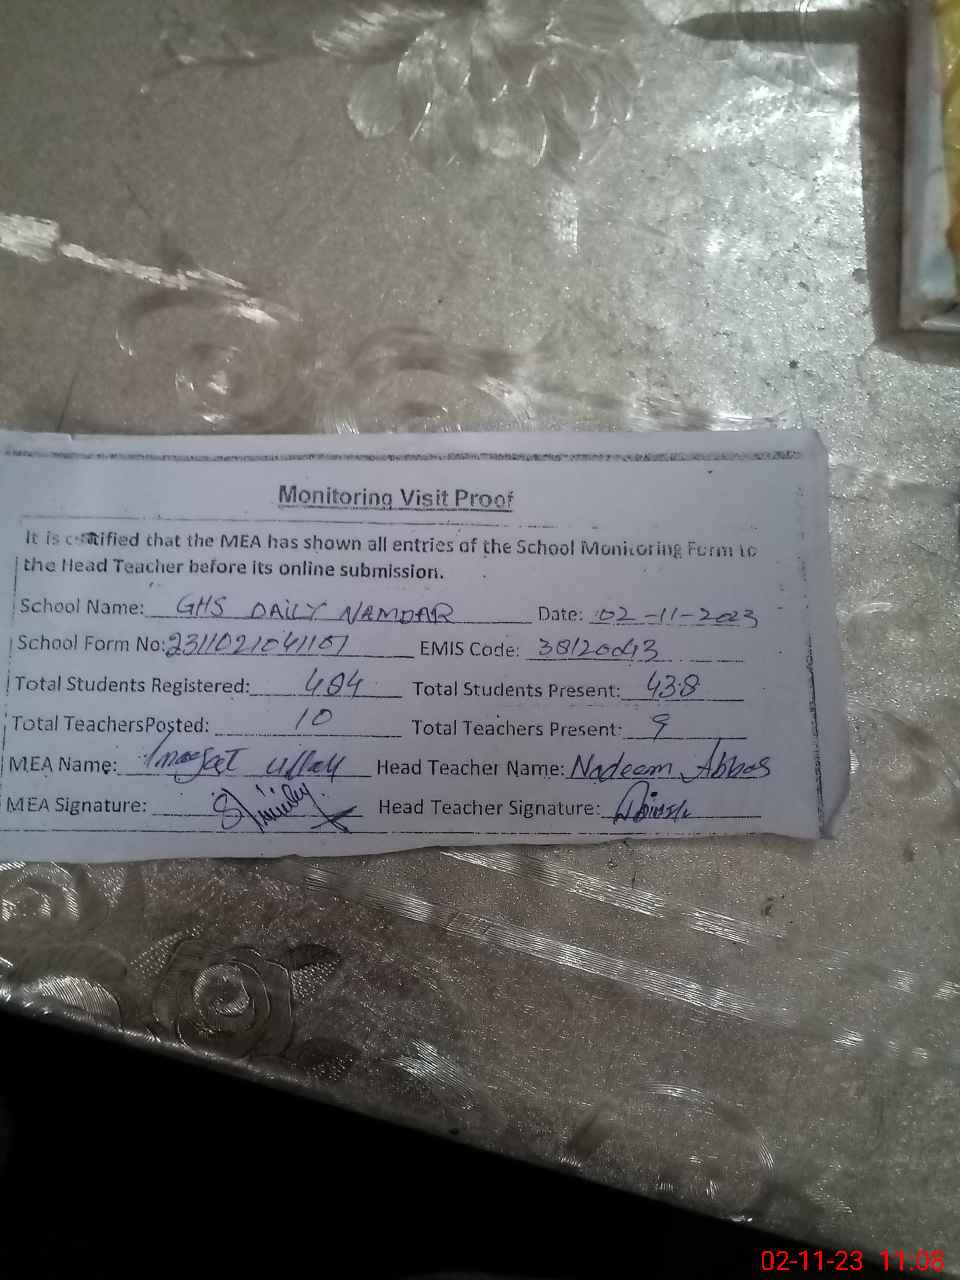 Monitoring Visit Proof
It is certified that the MEA has shown all entries of the School Monitoring Form to
the Head Teacher before its online submission.
School Name: GHS DAILY NAMDAR Date: 02-11-2023
School Form No: 2311021041101 EMIS Code: 38120043
Total Students Registered: 484 Total Students Present: 438
Total TeachersPosted: 10 Total Teachers Present: 9
MEA Name: ullah Head Teacher Name: Nadeem Abbas
MEA Signature: Head Teacher Signature:
02-11-23 11:08